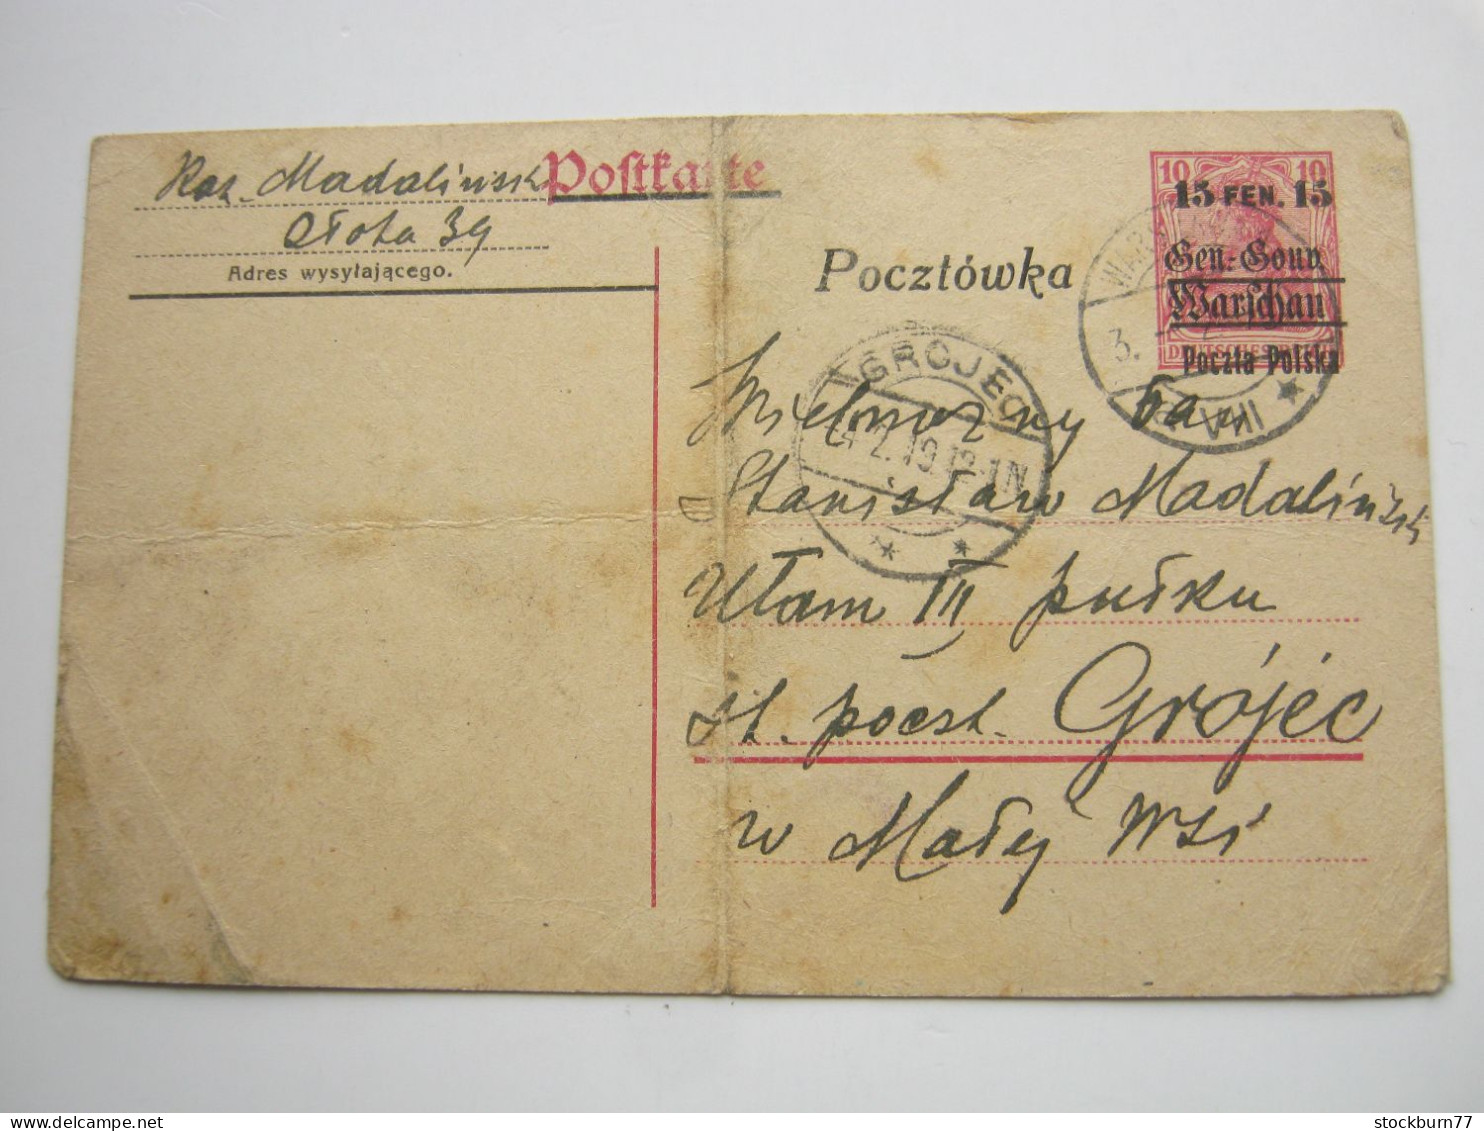 Kaz. Madalińsk
Złota 39
Adres wysyłającego.
Postkarte
Pocztówka
10 10
15 FEN. 15
Gen.-Gouv.
Warschau
DEUTSCHES REICH
Poczta Polska
WARS
3.
GROJEC
4.2.19.12-1N
Wielmożny Pan
Stanisław Madalińsk
Ułan III pułku
st. poczt. Grójec
w Małej Wsi
stockburn77